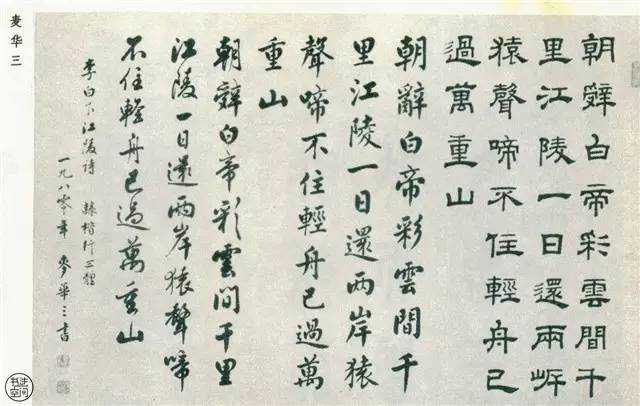 朝辤白帝彩雲間千
里江陵一日還兩岸
猿聲啼不住輕舟已
過萬重山
朝辭白帝彩雲間千
里江陵一日還兩岸猿
聲啼不住輕舟已過萬
重山
朝辤白帝彩雲間千里
江陵一日還兩岸猿聲啼
不住輕舟已過萬重山
李白下江陵詩 隸楷行三體
一九八零年 麥華三書
麦华三
书法空间